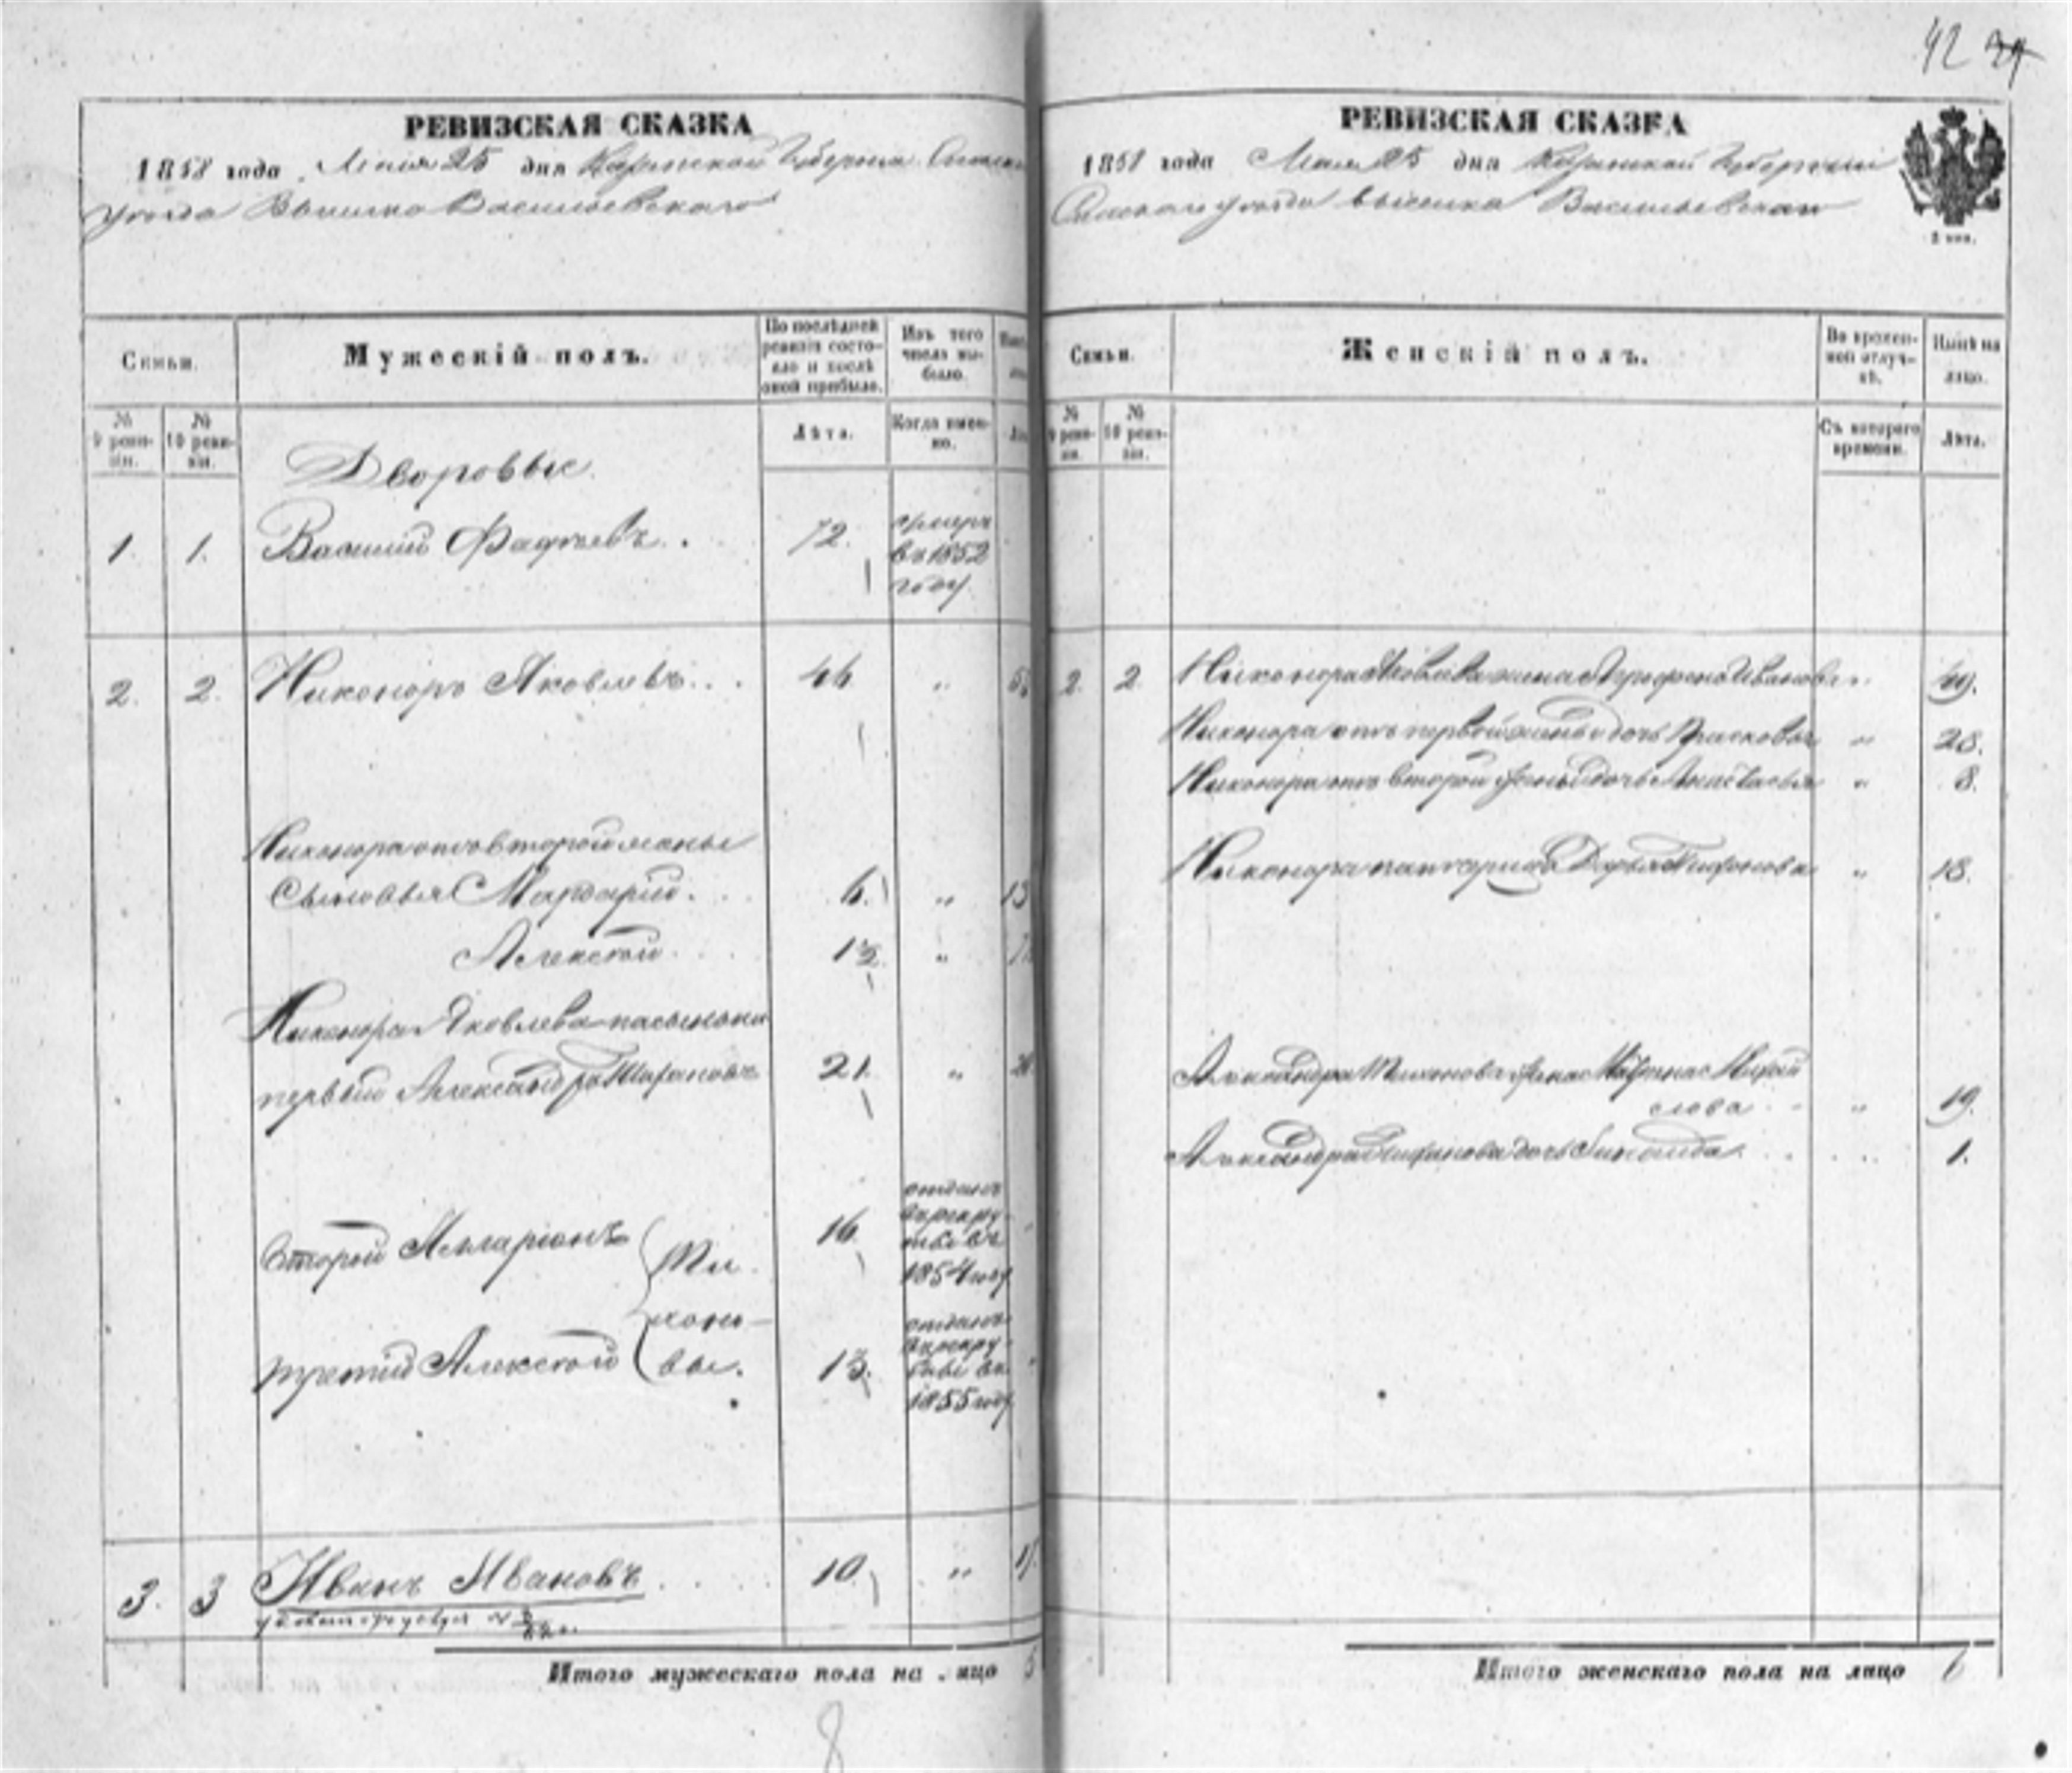 42
РЕВИЗСКАЯ СКАЗКА
1858 года Мая 25 дня Казанской Губернии Спаской
уезда Выселка Васильевскаго
Семьи.
Мужескій полъ.
По послѣдней ревизіи состояло и послѣ оной прибыло.
Изъ того числа выбыло.
№ 9 ревизіи.
№ 10 ревизіи.
Лѣта.
Когда именно.
Дворовые
1. 1. Василий Фадѣевъ. 72. умеръ
въ 1852
году
2. 2. Никоноръ Яковлевъ... 46 "
Никонора отъ второй жены
Сыновья Мардарий. 6. " 13
Алексѣй. 1½ "
Никонора Яковлева пасынки
первый Александръ Тихоновъ 21. "
второй Илларіонъ Ти 16. отданъ
в рекру-
ты въ
1854 году
хоно-
третий Алексѣй вы. 13. отданъ
в рекру-
ты въ
1855 году
3. 3 Иванъ Ивановъ 10. "
Итого мужескаго пола на лицо
8
РЕВИЗСКАЯ СКАЗКА
1858 года Мая 25 дня Казанской Губернии
Спаскаго уезда выселка Васильевскаго
Семьи.
Женскій полъ.
Во временной отлучкѣ.
Нынѣ на лицо.
№ 9 ревизіи.
№ 10 ревизіи.
Съ котораго времени.
Лѣта.
2. 2. Никонора Яковлева жена Аграфена Иванова " 49.
Никонора отъ первой жены дочь Прасковья " 28.
Никонора отъ второй жены дочь Анастасья " 8.
Никонора падчерица Дарья Тихонова " 18.
Александра Тихонова жена Матрена Михай
лова " 19.
Александра Тихонова дочь 1.
Итого женскаго пола на лицо 6